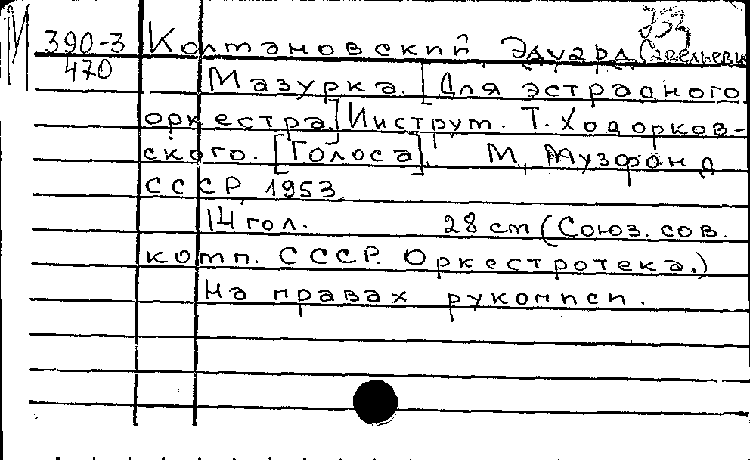 253
М 390-3 Колмановский, Эдуард Савельевич
470 Мазурка. [Для эстрадного
оркестра.] Инструм. Т. Ходорков-
ского. [Голоса]. М., Музфонд
СССР, 1953
14 гол. 28 cm (Союз. сов.
комп. СССР. Оркестротека.)
На правах рукописи.